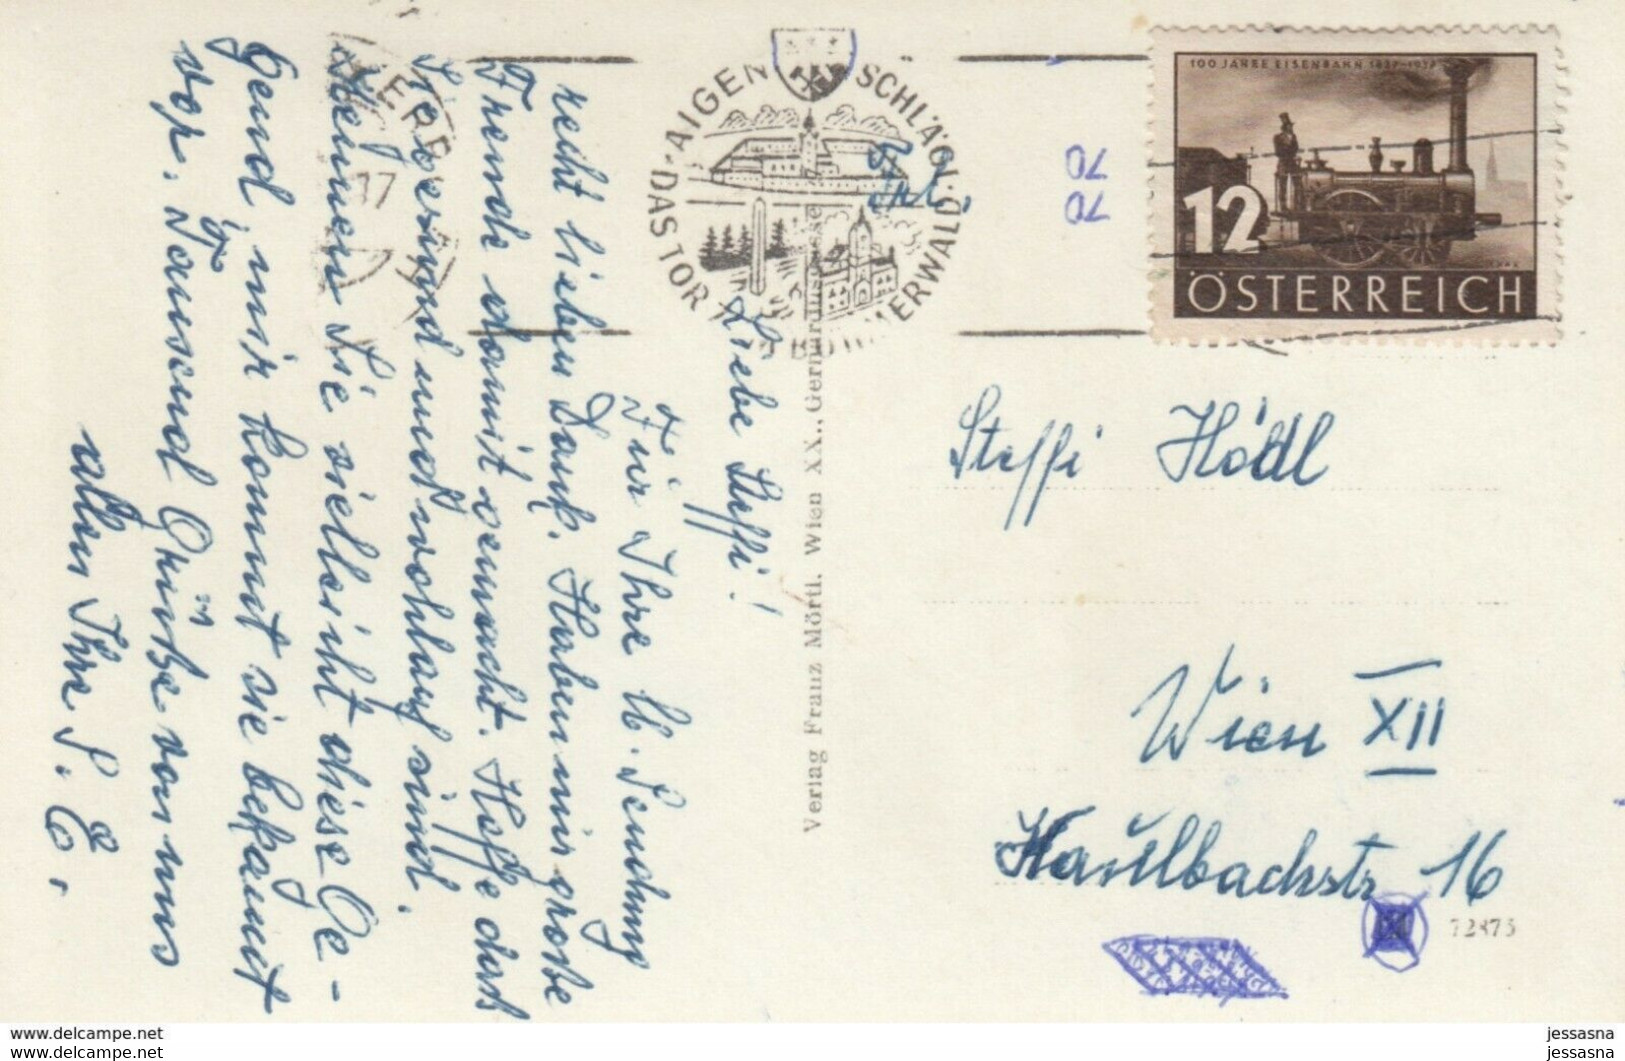 Liebe Steffi!
Für Ihre lb. Sendung
recht lieben Dank. Haben mir große
Freude damit gemacht. Hoffe daß
Sie gesund und wohlauf sind.
Kennen Sie vielleicht diese Ge-
gend, mir kommt sie bekannt
vor. Tausend Grüße von uns
allen Ihre S. E.
DAS TOR
D-AIGEN SCHLÄGL
BÖHMERWALD
Frl.
Steffi Hödl
Wien XII
Kaulbachstr 16
70
70
100 JAHRE EISENBAHN 1837-1937
12
ÖSTERREICH
Verlag Franz Mörtl, Wien XX., Gerhardusgasse
72875
www.delcampe.net
www.delcampe.net
jessasna
jessasna